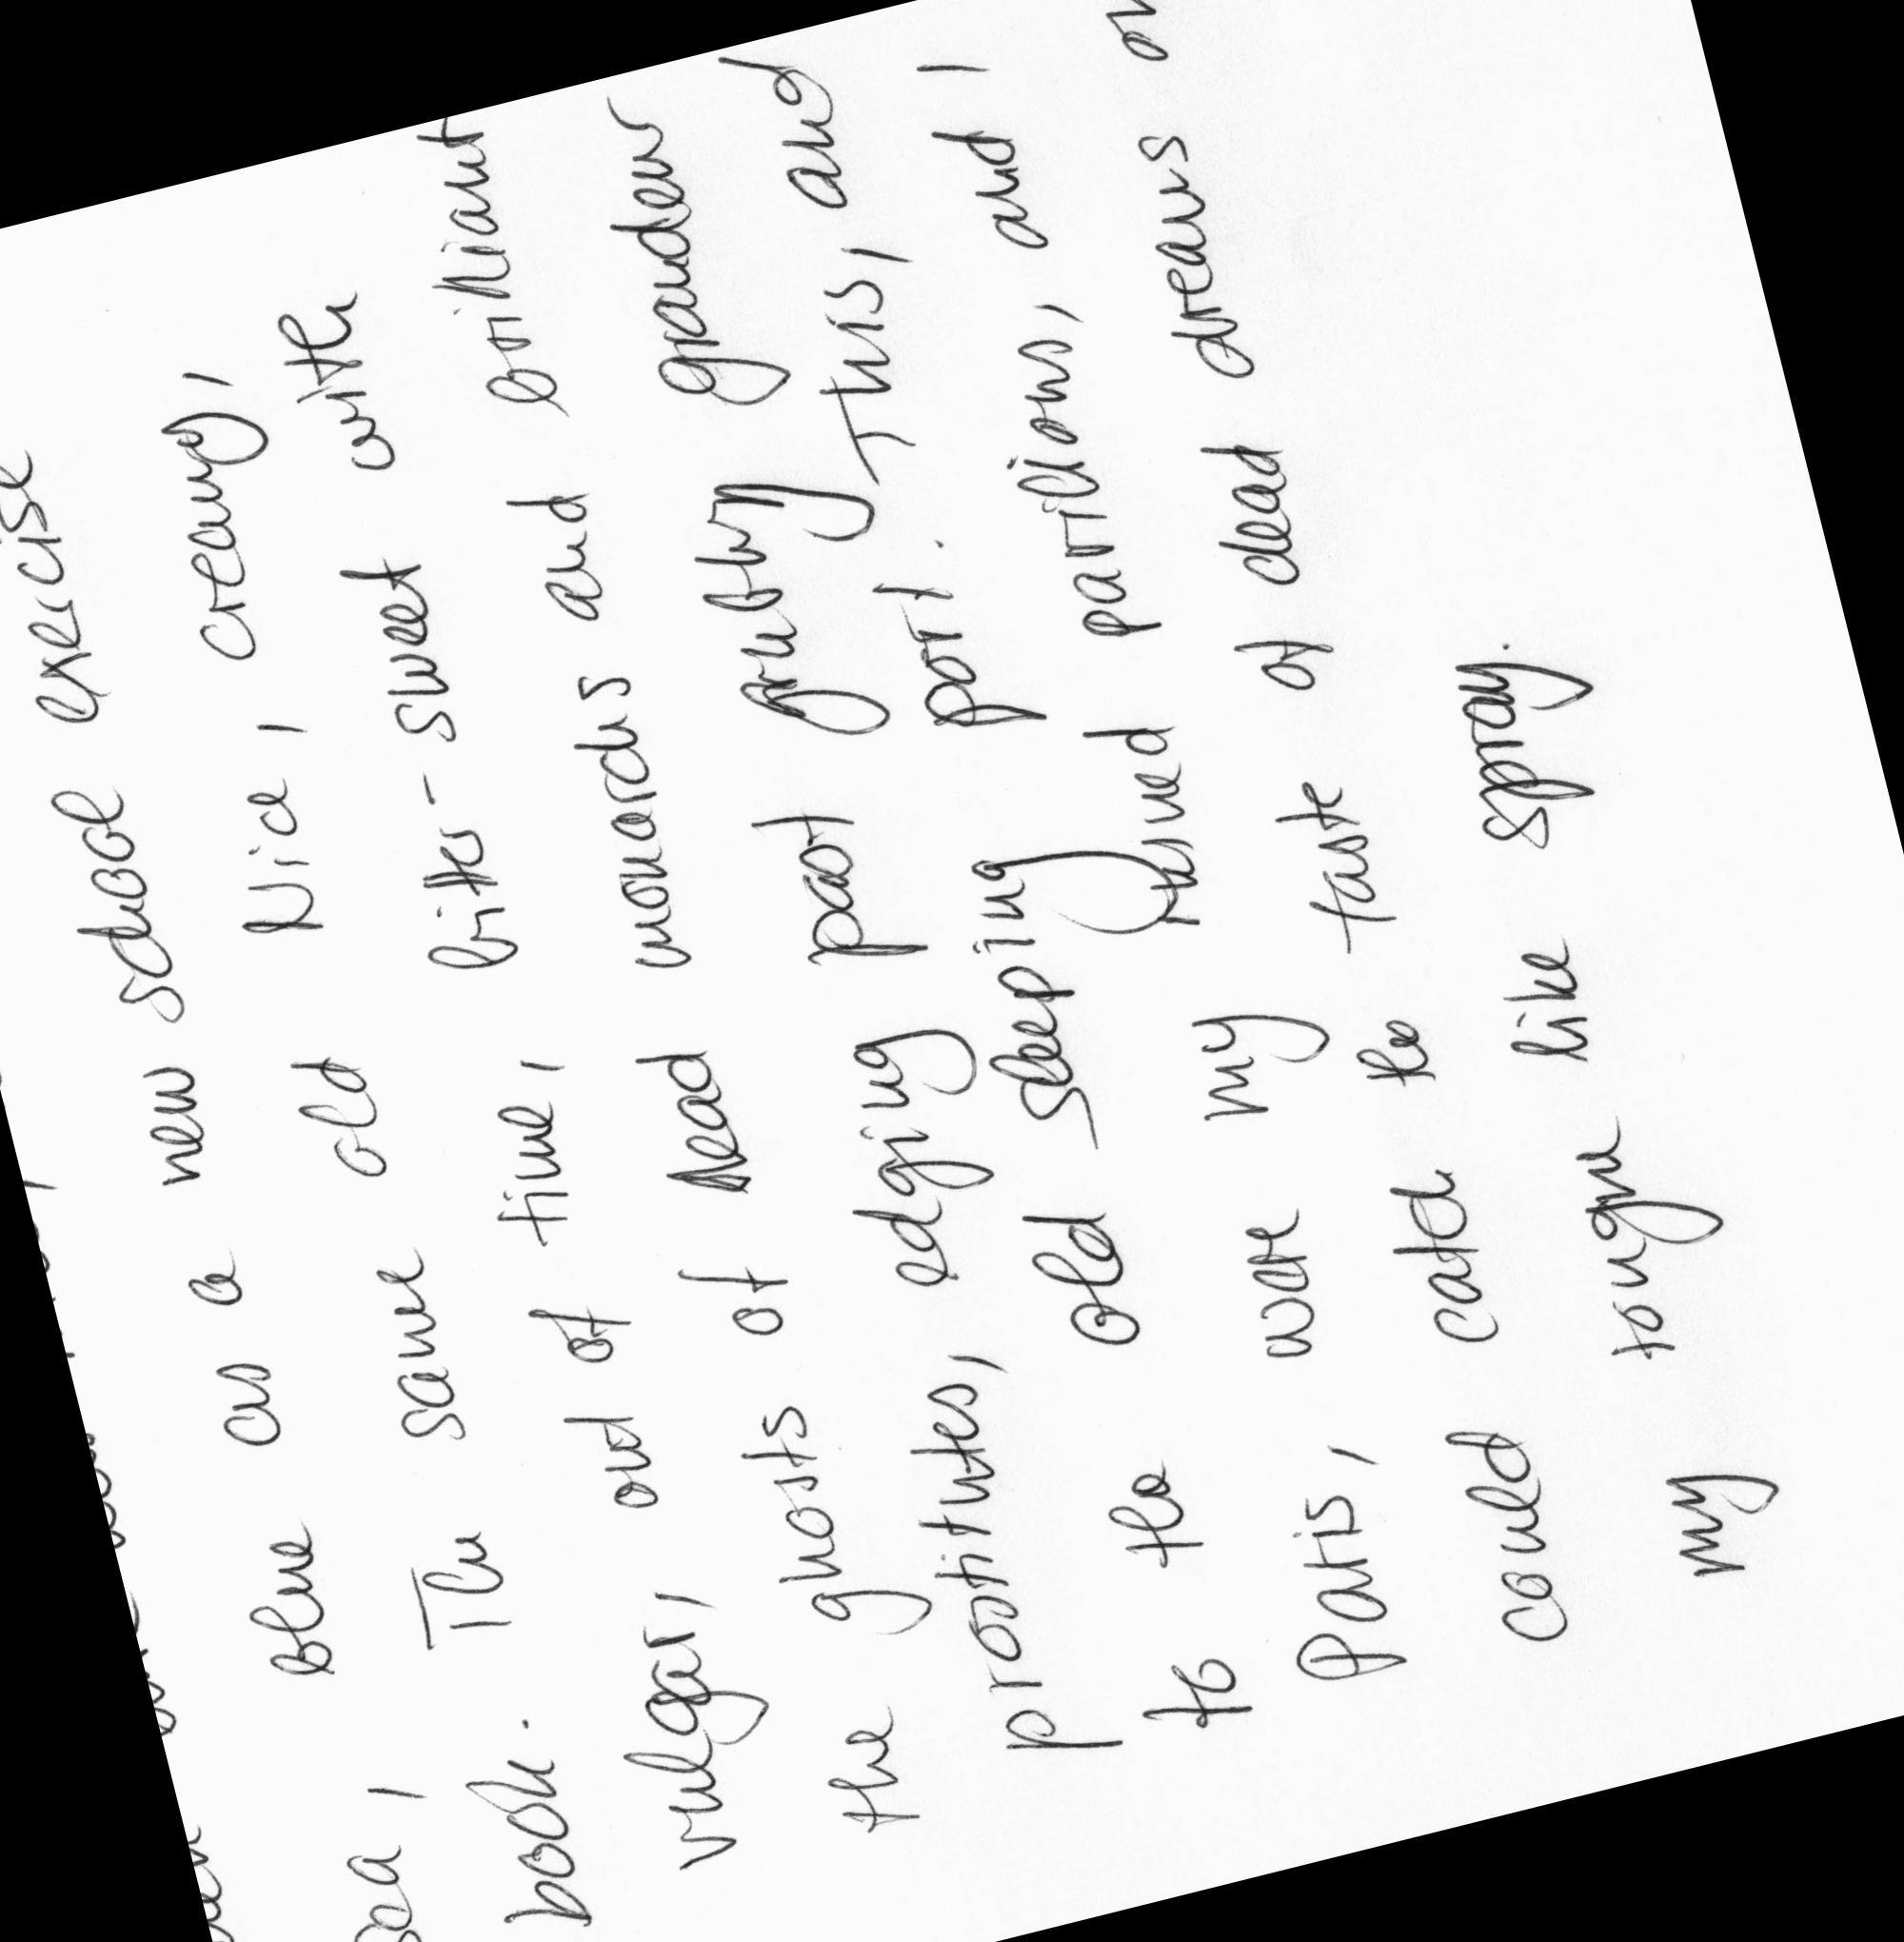 sea, blue as a new school exercise
book. The same old Nice, creamy,
vulgar, out of time, bitter-sweet with
the ghosts of dead monarchs and brilliant
prostitutes, edging past grubby grandeur
to the old sleeping port. This, and
Paris, were my thined partisions, and I
could catch the taste of dead dreams on
my tongue like spray.